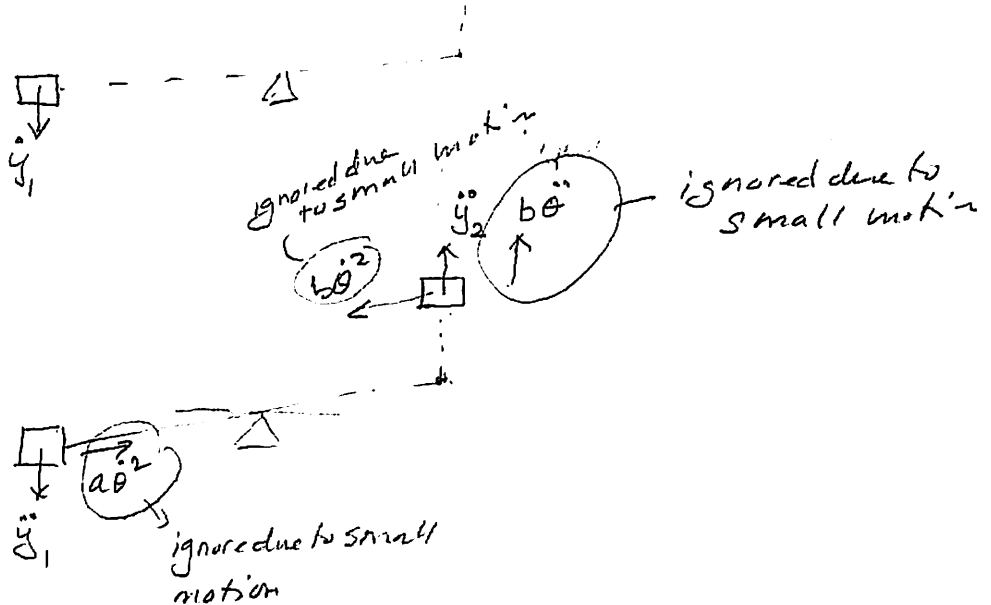 ẏ₁
ignored due
to small motion
ÿ₂
bθ̈
ignored due to
small motion
bθ̇²
aθ̇²
ÿ₁
ignore due to small
motion